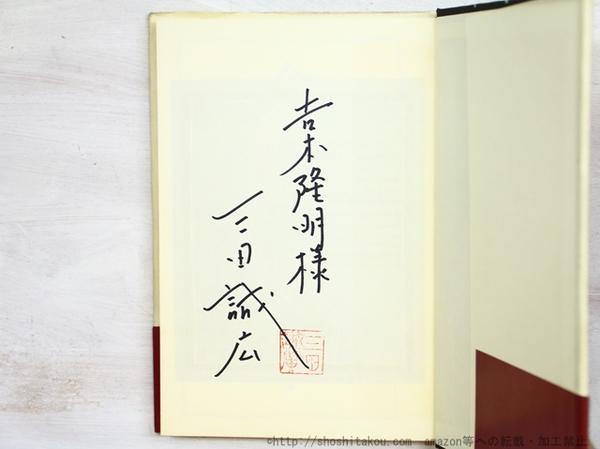 吉本隆明様
三田誠広
三田誠広
©http://shoshitakou.com amazon等への転載・加工禁止